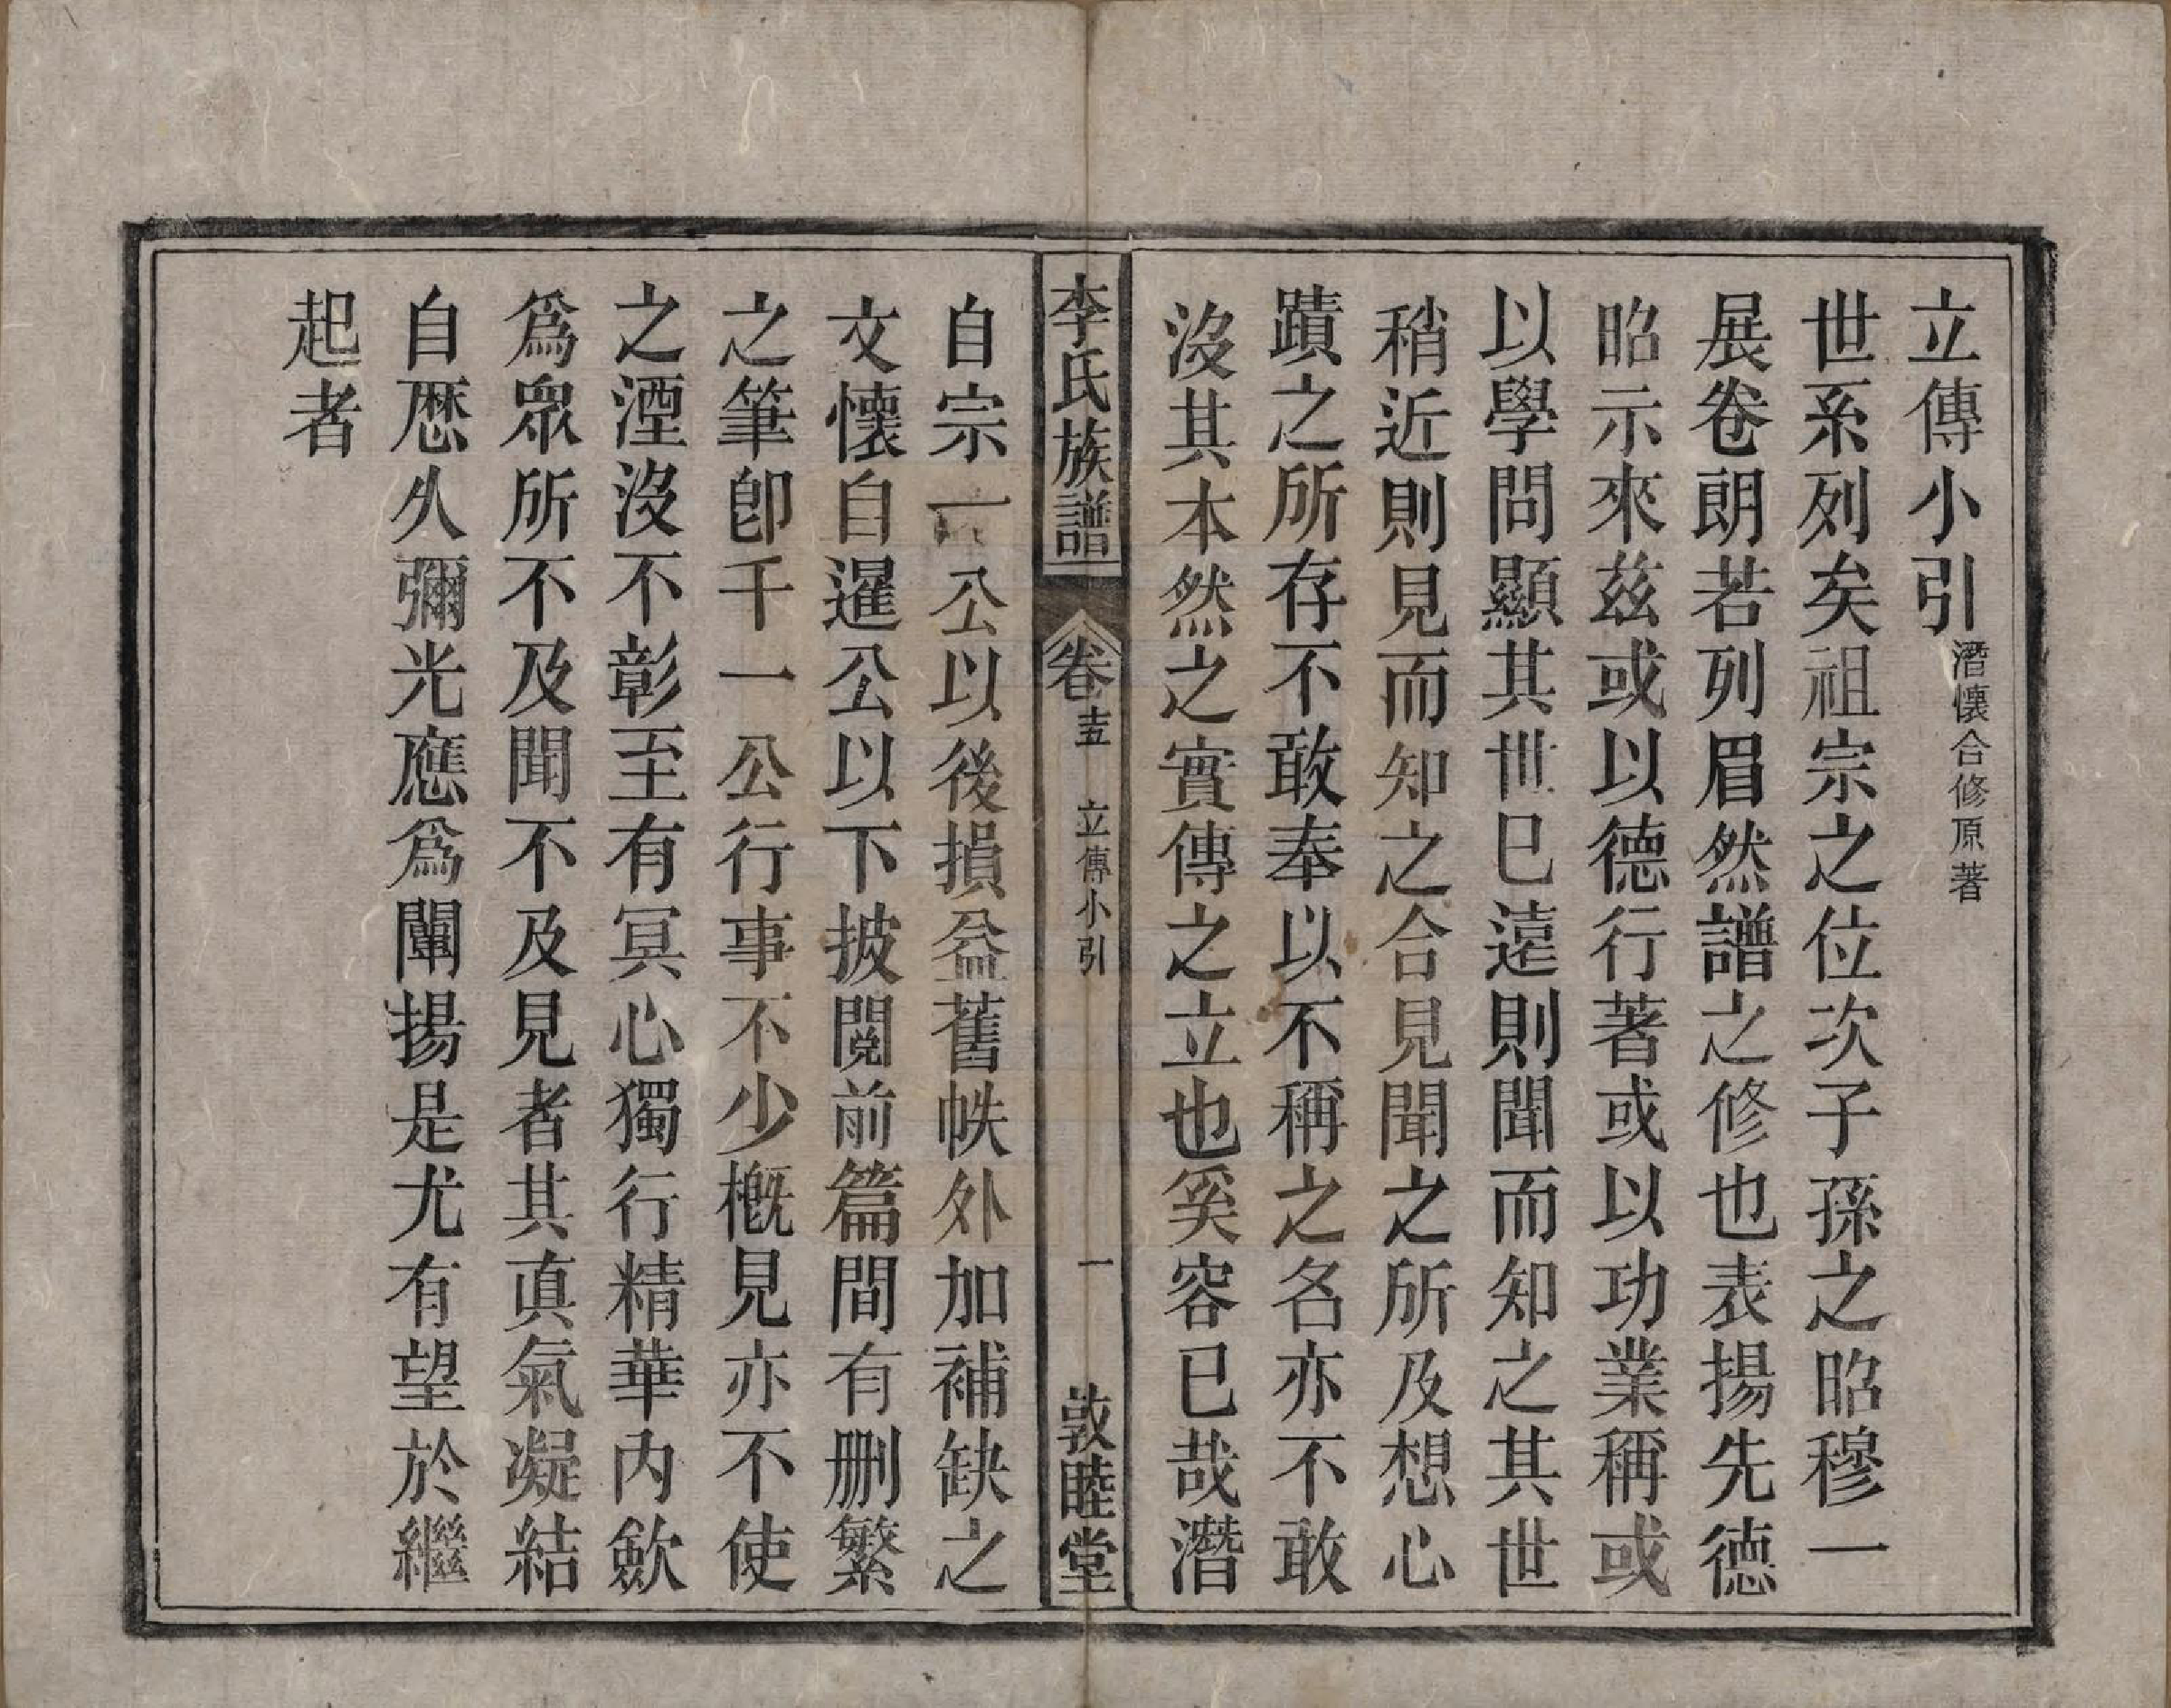 立傳小引潛懷合修原著
世系列矣祖宗之位次子孫之昭穆一
展卷朗若列眉然譜之修也表揚先德
昭示來兹或以德行著或以功業稱或
以學問顯其世已遠則聞而知之其世
稍近則見而知之合見聞之所及想心
蹟之所存不敢奉以不稱之名亦不敢
沒其本然之實傳之立也奚容已哉潛
李氏族譜 卷十五 立傳小引 一 敦睦堂
自宗一公以後損益舊帙外加補缺之
文懷自暹公以下披閱前篇間有删繁
之筆卽千一公行事不少概見亦不使
之湮沒不彰至有冥心獨行精華內斂
爲眾所不及聞不及見者其眞氣凝結
自厯久彌光應爲闡揚是尤有望於繼
起者